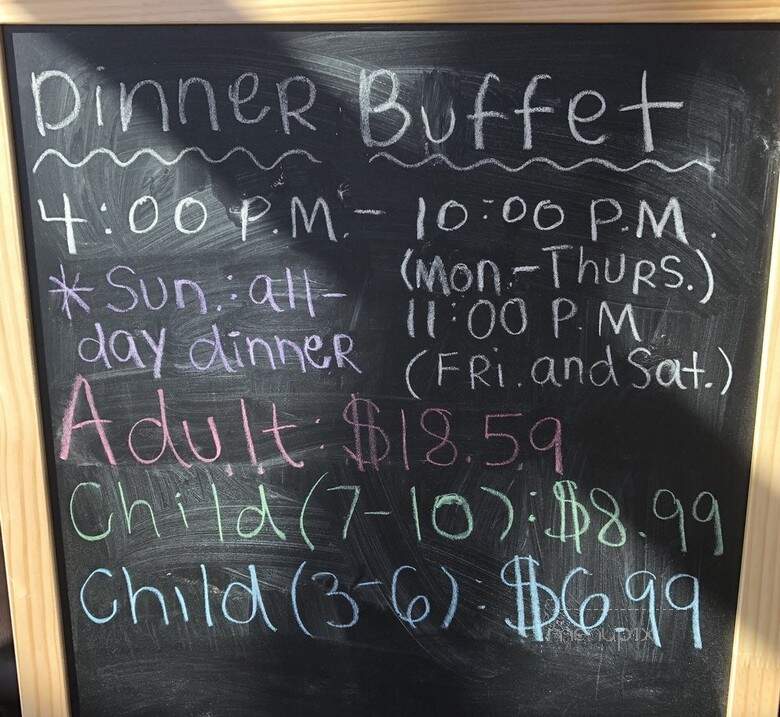 DinneR Buffet
4:00 P.M. - 10:00 P.M.
(Mon.-ThuRS.)
*Sun.: all-
day dinneR
11:00 P.M.
(FRi. and Sat.)
Adult: $18.59
Child (7-10): $8.99
Child (3-6): $6.99
menupix